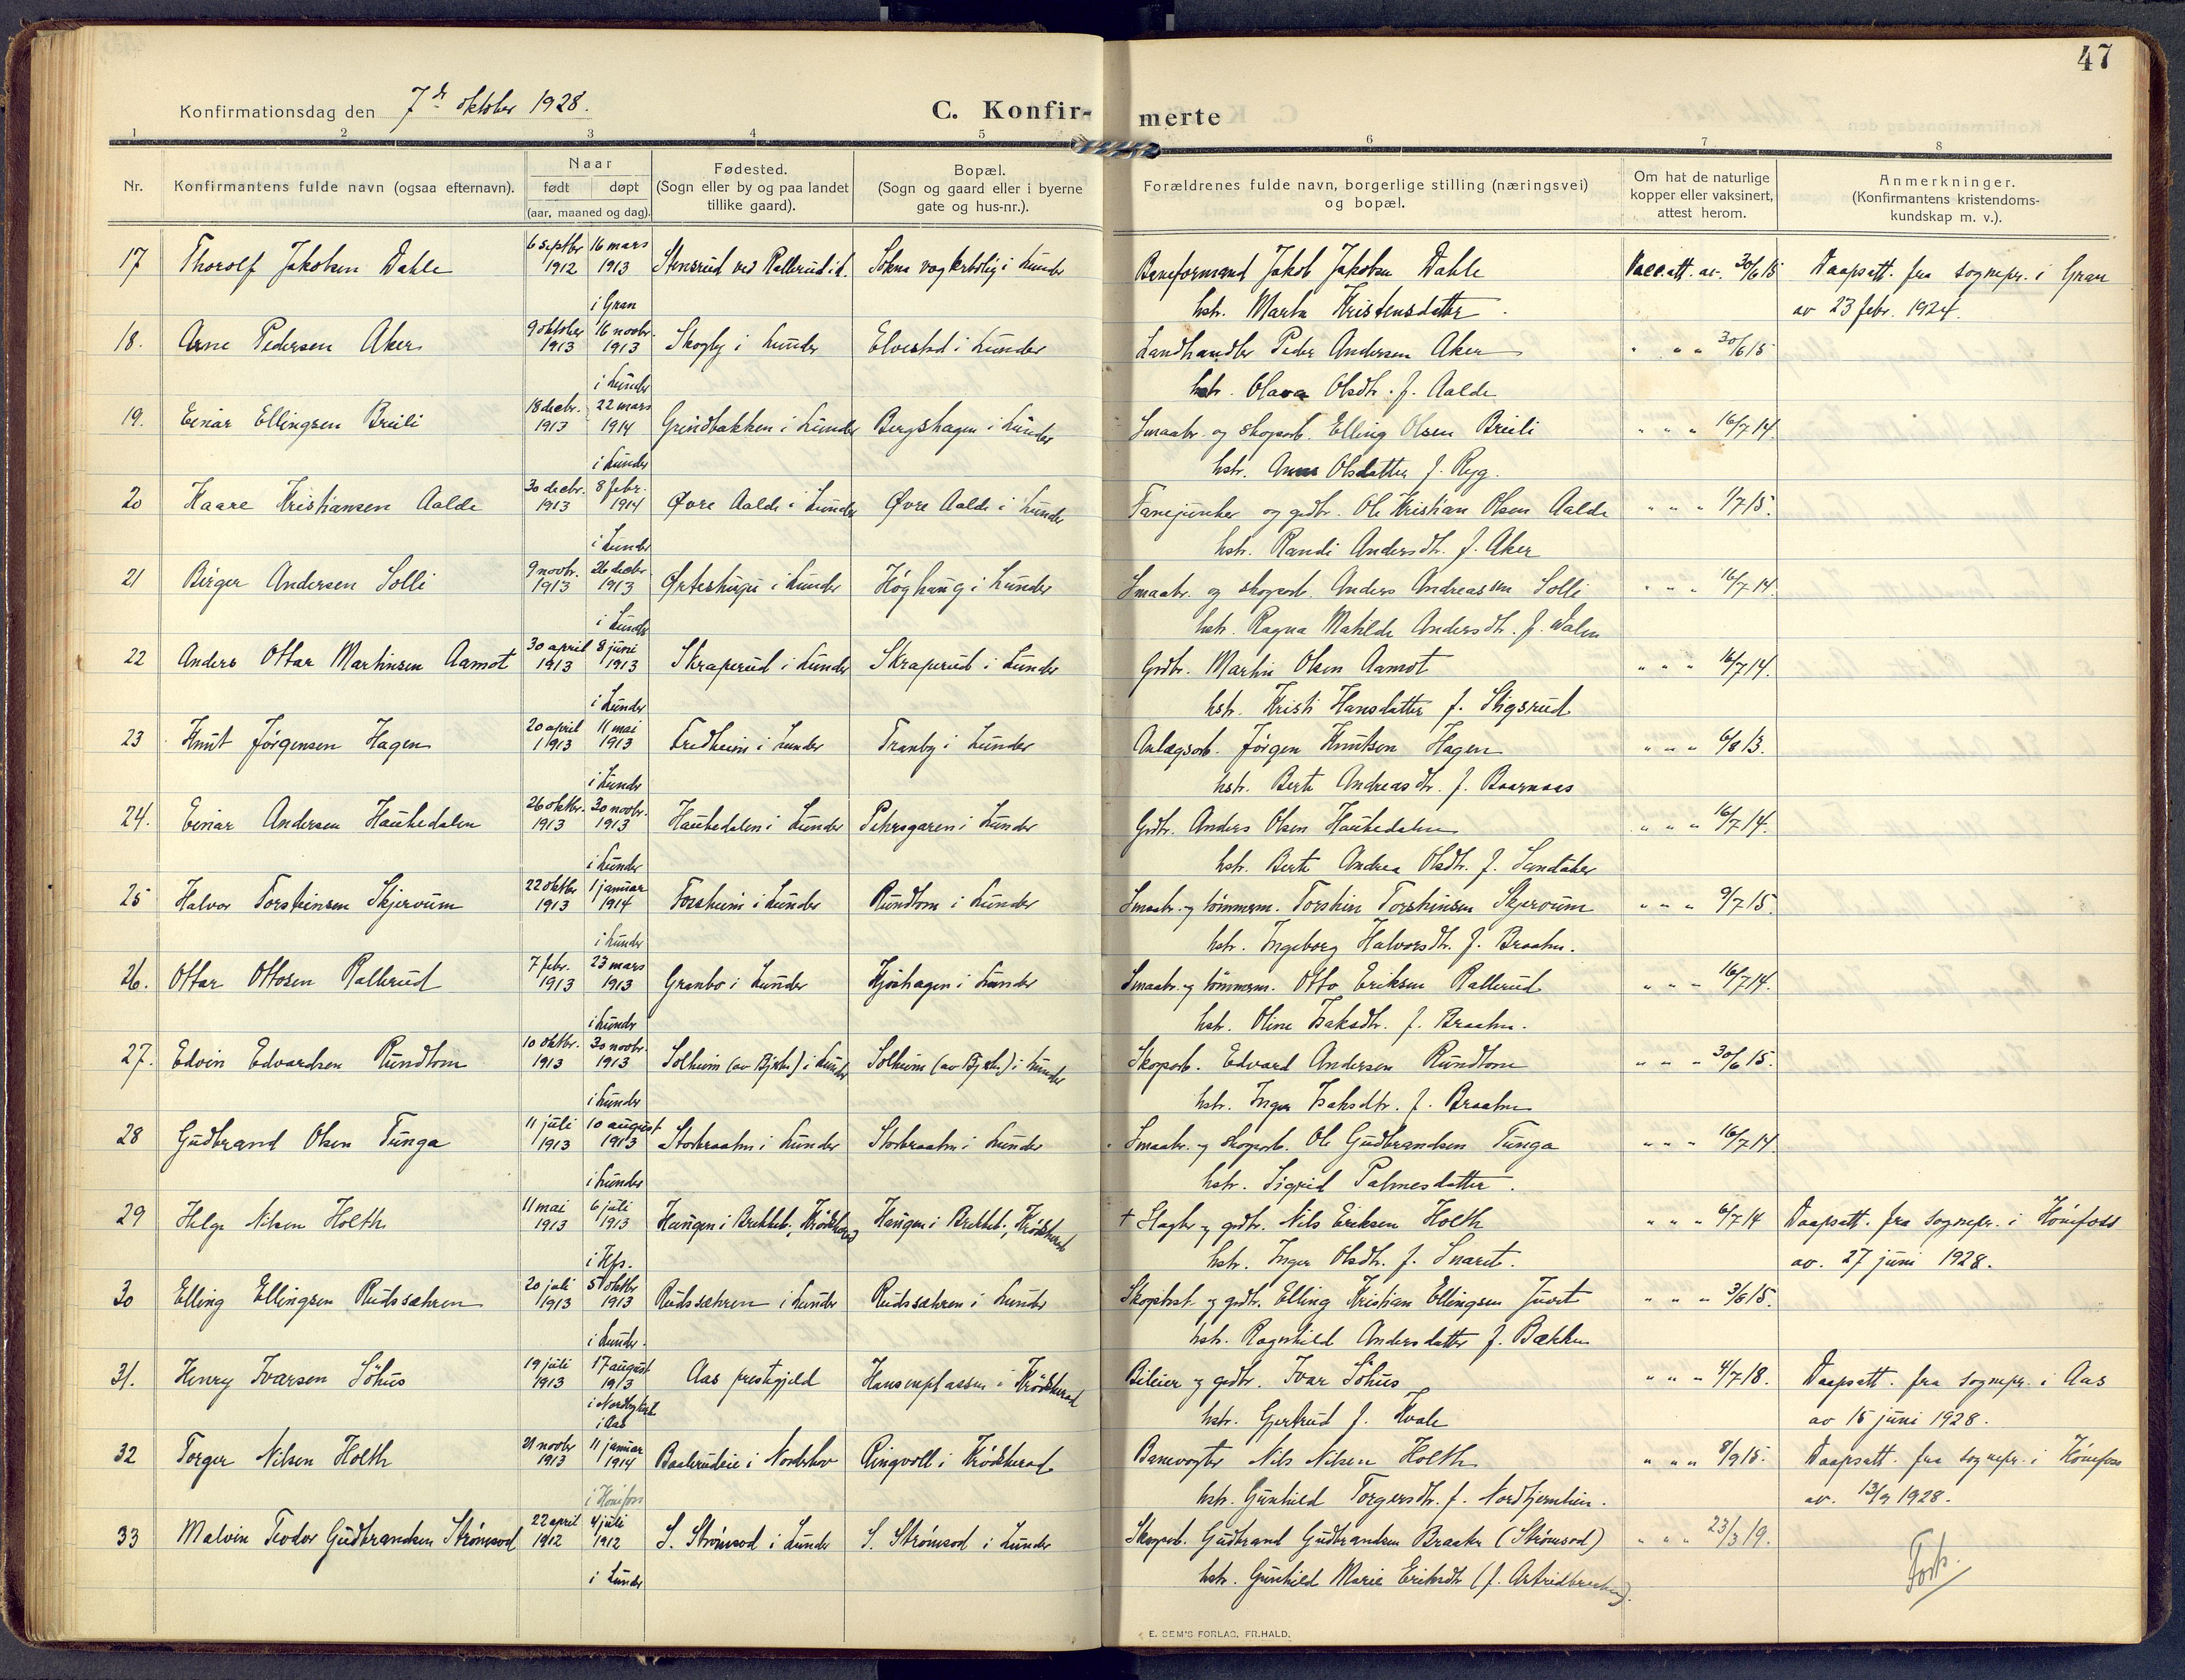 47
Konfirmationsdag den 7de oktober 1928.
C. Konfir- merte
1 2 3 4 5 6 7 8
Nr. Konfirmantens fulde navn (ogsaa efternavn). Naar født døpt (aar, maaned og dag). Fødested. (Sogn eller by og paa landet tillike gaard). Bopæl. (Sogn og gaard eller i byerne gate og hus-nr.). Forældrenes fulde navn, borgerlige stilling (næringsvei) og bopæl. Om hat de naturlige kopper eller vaksinert, attest herom. Anmerkninger. (Konfirmantens kristendoms-kundskap m. v.).
17 Thorolf Jakobsen Dahle 6 septbr 1912 16 mars 1913 Stensrud ved Rallerud st. Sokna vogterbolig i Lunder Baneformand Jakob Jakobsen Dahle Vacc.att. av. 30/6 15 Daapsatt. fra sognepr. i Gran
i Gran hstr. Marta Kristensdatter. av 23 febr. 1924.
18. Arne Pedersen Aker 9 oktober 1913 16 novbr. 1913 Skogly i Lunder Elvestad i Lunder Landhandler Peder Andersen Aker " " " 30/6 15
i Lunder hstr. Olava Olsdtr. f. Aalde
19. Einar Ellingsen Breili 18 decbr. 1913 22 mars 1914 Grindbakken i Lunder Bergshagen i Lunder Smaabr. og skogarb. Elling Olsen Breili " " " 16/7 14.
i Lunder hstr. Anna Olsdatter f. Ryg.
20 Kaare Kristiansen Aalde 30 decbr. 1913 8 febr. 1914 Øvre Aalde i Lunder Øvre Aalde i Lunder Fanejunker og grdbr. Ole Kristian Olsen Aalde " " " 1/7 15.
i Lunder hstr. Randi Andersdtr. f. Aker
21 Birger Andersen Solli 9 novbr. 1913 26 decbr 1913 i Lunder Høghaug i Lunder Smaabr. og skogarb. Anders Andreassen Solli " " " 16/7 14.
i Lunder hstr. Ragna Matilde Andersdtr. f. Dalen
22 Anders Ottar Martinsen Aamot 30 april 1913 8 juni 1913 Skraperud i Lunder Skraperud i Lunder Grdbr. Martin Olsen Aamot " " " 16/7 14.
i Lunder hstr. Kristi Hansdatter f. Stigsrud
23 Knut Jørgensen Hagen 20 april 1913 11 mai 1913 Fredheim i Lunder Tranby i Lunder Anlægsarb. Jørgen Knutsen Hagen " " " 6/8 13.
i Lunder hstr. Berte Andreasdtr. f. Baarnaas
24. Einar Andersen Haukedalen 26 oktbr. 1913 30 novbr. 1913 Haukedalen i Lunder Pehrsgaren i Lunder Grdbr. Anders Olsen Haukedalen " " " 16/7 14.
i Lunder hstr. Berte Andrea Olsdtr. f. Sandaker
25 Halvor Torsteinsen Skjervum 22 oktbr 1913 1 januar 1914 Forsheim i Lunder Rundtom i Lunder Smaabr. og tømmerm. Torstein Torsteinsen Skjervum " " " 9/7 15.
i Lunder hstr. Ingeborg Halvorsdtr. f. Braaten.
26. Ottar Ottosen Rallerud 7 febr. 1913 23 mars 1913 Granbo i Lunder Kjøshagen i Lunder Smaabr. og tømmerm. Otto Eriksen Rallerud " " " 16/7 14.
i Lunder hstr. Oline Isaksdtr. f. Braaten.
27. Edvin Edvardsen Rundtom 10 oktbr. 1913 30 novbr. 1913 Solheim i Lunder Solheim i Lunder Skogarb. Edvard Andersen Rundtom " " " 30/6 15.
i Lunder hstr. Inger Isaksdtr. f. Braaten
28 Gudbrand Olsen Tunga 11 juli 1913 10 august 1913 Storbraaten i Lunder Storbraaten i Lunder Smaabr. og skogarb. Ole Gudbrandsen Tunga " " " 16/7 14.
i Lunder hstr. Sigrid Palmesdatter.
29 Helge Nilsen Holth 11 mai 1913 6 juli 1913 Haugen i Brekkeb., Krødsherad Haugen i Brekkeb., Krødsherad † Slagter og grdbr. Nils Eriksen Holth " " " 6/7 14 Daapsatt. fra sognepr. i Hønefoss
i Hfs. hstr. Inger Olsdtr. f. Snaret. av. 27 juni 1928.
30 Elling Ellingsen Rudssætren 20 juli 1913 5 oktbr 1913 Rudssætren i Lunder Rudssætren i Lunder og grdbr. Elling Kristian Ellingsen Juvet " " " 3/6 15.
i Lunder. hstr. Ragnhild Andersdatter f. Bækken
31. Henry Ivarsen Söhus 19 juli 1913 17 august 1913 Aas prestegjeld Hansenplassen i Krødsherad Bileier og grdbr. Ivar Söhus " " " 4/7 18. Daapsatt. fra sognepr. i Aas
i Nordby kirke i Aas hstr. Gjertrud f. Kvale av 15 juni 1928.
32 Torger Nilsen Holth 21 novbr 1913 11 januar 1914 Baalerudeie i Norderhov Ringvoll i Krødsherad Banevogter Nils Nilsen Holth " " " 8/9 15. Daapsatt. fra sognepr. i Hønefoss
i Hönefoss hstr. Gunhild Torgersdtr. f. Nordkjernlien. av. 13/9 1928.
33 Malvin Teodor Gudbrandsen Strømsod 22 april 1912 4 juli 1912 S. Strømsod i Lunder S. Strømsod i Lunder Skogarb. Gudbrand Gudbrandsen Braaten (Strømsod) " " " 23/3 19.
i Lunder hstr. Gunhild Marie Eriksdtr (f. Astridbraaten). Forts.
E. SEM'S FORLAG, FR.HALD.